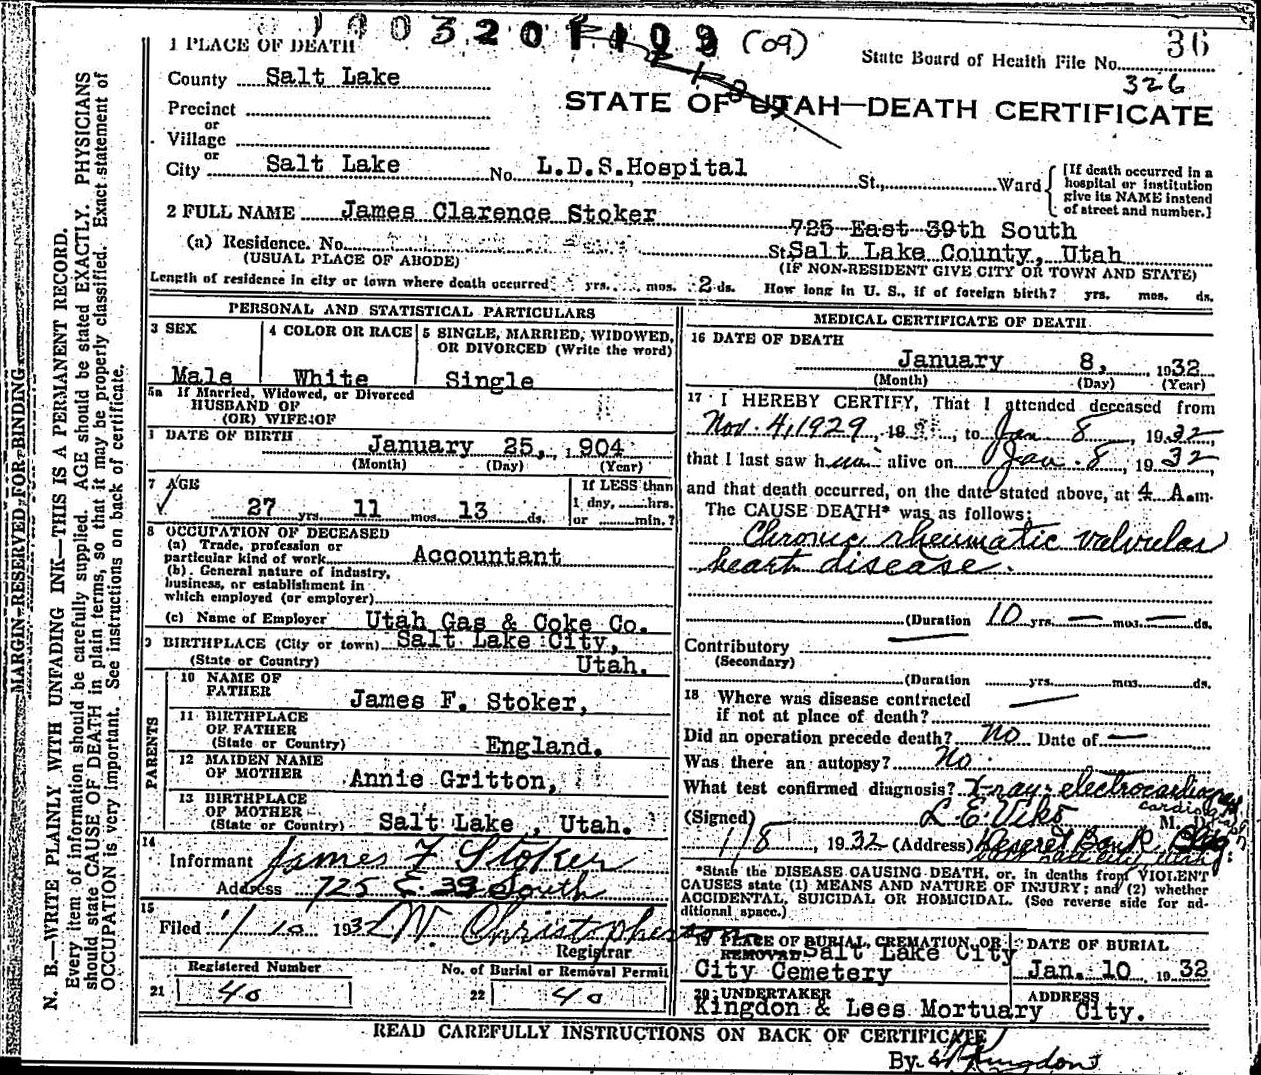 3201109 (09)
36
1 PLACE OF DEATH
State Board of Health File No.
326
County Salt Lake
STATE OF UTAH—DEATH CERTIFICATE
Precinct
or
Village
or
City Salt Lake No. L.D.S.Hospital St., Ward
[If death occurred in a
hospital or institution
give its NAME instead
of street and number.]
2 FULL NAME James Clarence Stoker
725 East 39th South
(a) Residence. No. St. Salt Lake County, Utah
(USUAL PLACE OF ABODE) (IF NON-RESIDENT GIVE CITY OR TOWN AND STATE)
Length of residence in city or town where death occurred yrs. mos. 2 ds. How long in U. S., if of foreign birth? yrs. mos. ds.
PERSONAL AND STATISTICAL PARTICULARS
3 SEX
Male
4 COLOR OR RACE
White
5 SINGLE, MARRIED, WIDOWED,
OR DIVORCED (Write the word)
Single
5a If Married, Widowed, or Divorced
HUSBAND OF
(OR) WIFE OF
DATE OF BIRTH January 25, 1904
(Month) (Day) (Year)
7 AGE
27 yrs. 11 mos. 13 ds.
If LESS than
1 day, hrs.
or min.?
8 OCCUPATION OF DECEASED
(a) Trade, profession or
particular kind of work Accountant
(b) General nature of industry,
business, or establishment in
which employed (or employer)
(c) Name of Employer Utah Gas & Coke Co.
9 BIRTHPLACE (City or town) Salt Lake City,
(State or Country) Utah.
PARENTS
10 NAME OF
FATHER James F. Stoker,
11 BIRTHPLACE
OF FATHER
(State or Country) England.
12 MAIDEN NAME
OF MOTHER Annie Gritton,
13 BIRTHPLACE
OF MOTHER
(State or Country) Salt Lake, Utah.
14
Informant James F Stoker
Address 725 E 39 South
15
Filed 1/10 1932 W. Christopherson
Registrar
Registered Number
21 40
No. of Burial or Removal Permit
22 40
MEDICAL CERTIFICATE OF DEATH
16 DATE OF DEATH
January 8, 1932
(Month) (Day) (Year)
17 I HEREBY CERTIFY, That I attended deceased from
Nov. 4, 1929, to Jan 8, 1932,
that I last saw him alive on Jan. 8, 1932,
and that death occurred, on the date stated above, at 4 A.m.
The CAUSE DEATH* was as follows:
Chronic rheumatic valvular
heart disease.
(Duration 10 yrs. — mos. — ds.
Contributory
(Secondary)
(Duration yrs. mos. ds.
18 Where was disease contracted
if not at place of death?
Did an operation precede death? No Date of —
Was there an autopsy? No.
What test confirmed diagnosis? X-ray; electrocardiograph
(Signed) L. E. Viko M. D.
1/8, 1932 (Address) Deseret Bank Bldg.
Salt Lake City, Utah
*State the DISEASE CAUSING DEATH, or, in deaths from VIOLENT
CAUSES state (1) MEANS AND NATURE OF INJURY; and (2) whether
ACCIDENTAL, SUICIDAL OR HOMICIDAL. (See reverse side for ad-
ditional space.)
19 PLACE OF BURIAL, CREMATION, OR
REMOVAL Salt Lake City
City Cemetery
DATE OF BURIAL
Jan. 10 1932
20 UNDERTAKER
Kingdon & Lees Mortuary
ADDRESS
City.
READ CAREFULLY INSTRUCTIONS ON BACK OF CERTIFICATE
By Kingdon
MARGIN RESERVED FOR BINDING
N. B.—WRITE PLAINLY WITH UNFADING INK—THIS IS A PERMANENT RECORD.
Every item of information should be carefully supplied. AGE should be stated EXACTLY. PHYSICIANS
should state CAUSE OF DEATH in plain terms, so that it may be properly classified. Exact statement of
OCCUPATION is very important. See instructions on back of certificate.